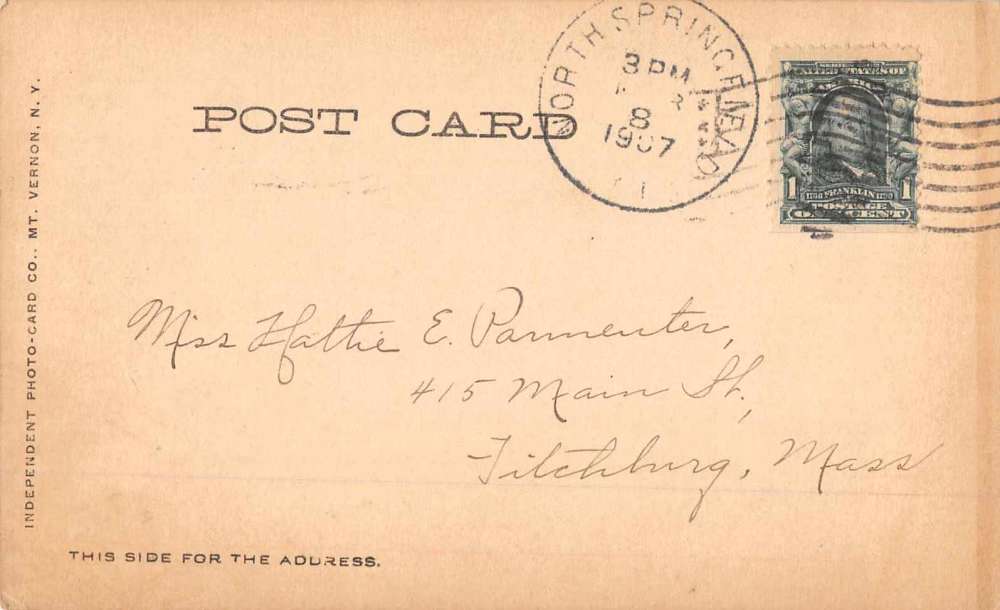 NORTH SPRINGFIELD
3 PM
8
1907
SERIES 1902
UNITED STATES OF
AMERICA
1 1
FRANKLIN
POSTAGE
ONE CENT
POST CARD
INDEPENDENT PHOTO-CARD CO., MT. VERNON, N. Y.
Miss Hattie E. Parmenter,
415 Main St.,
Fitchburg, Mass
THIS SIDE FOR THE ADDRESS.